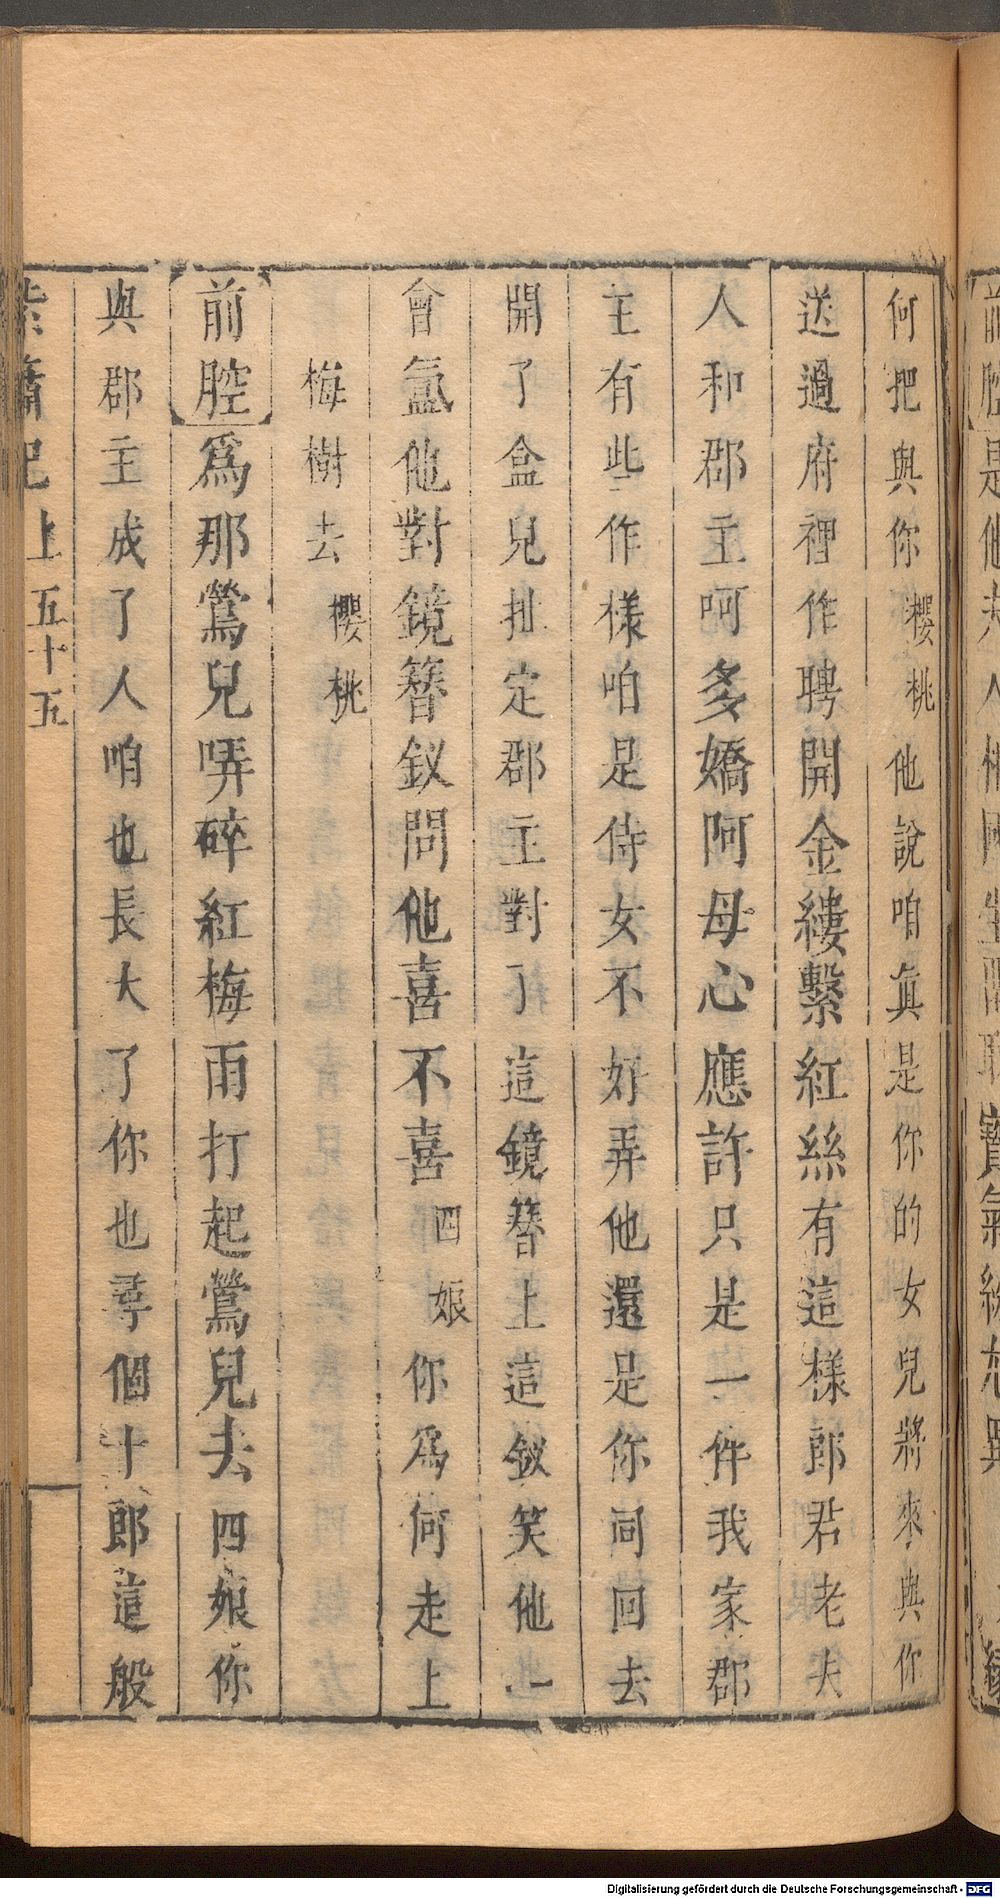 何把與你櫻桃他說咱眞是你的女兒將來與你
送過府裡作聘開金縷繫紅絲有這樣郎君老夫
人和郡主呵多嬌阿母心應許只是一件我家郡
主有些作樣咱是侍女不好弄他還是你同回去
開了盒兒扯定郡主對了這鏡簪上這釵笑他一
會氳他對鏡簪釵問他喜不喜四娘你爲何走上
梅樹去櫻桃
前腔爲那鶯兒哢碎紅梅雨打起鶯兒去四娘你
與郡主成了人咱也長大了你也尋個十郎這般
紫簫記 上 五十五
Digitalisierung gefördert durch die Deutsche Forschungsgemeinschaft - DFG